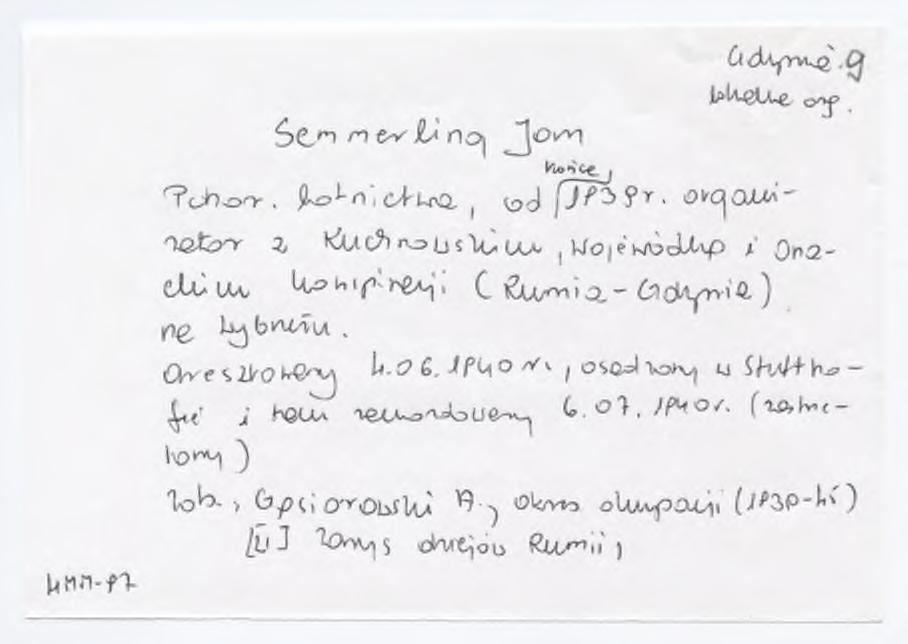 Gdynia.g
Semmerling Jan
końca
Pchor. lotnictwa, od 1939r. organi-
zator z Kuchnowskim, Wojewódką i Ona-
chim konspiracji (Rumia-Gdynia)
na Wybrzeżu.
Aresztowany 4.06.1940 r., osadzony w Stuttho-
fie i tam zamordowany 6.07.1940r. (zastrze-
lony)
Zob., Gąsiorowski A., Okres okupacji (1939-45)
[w] Zarys dziejów Rumii,